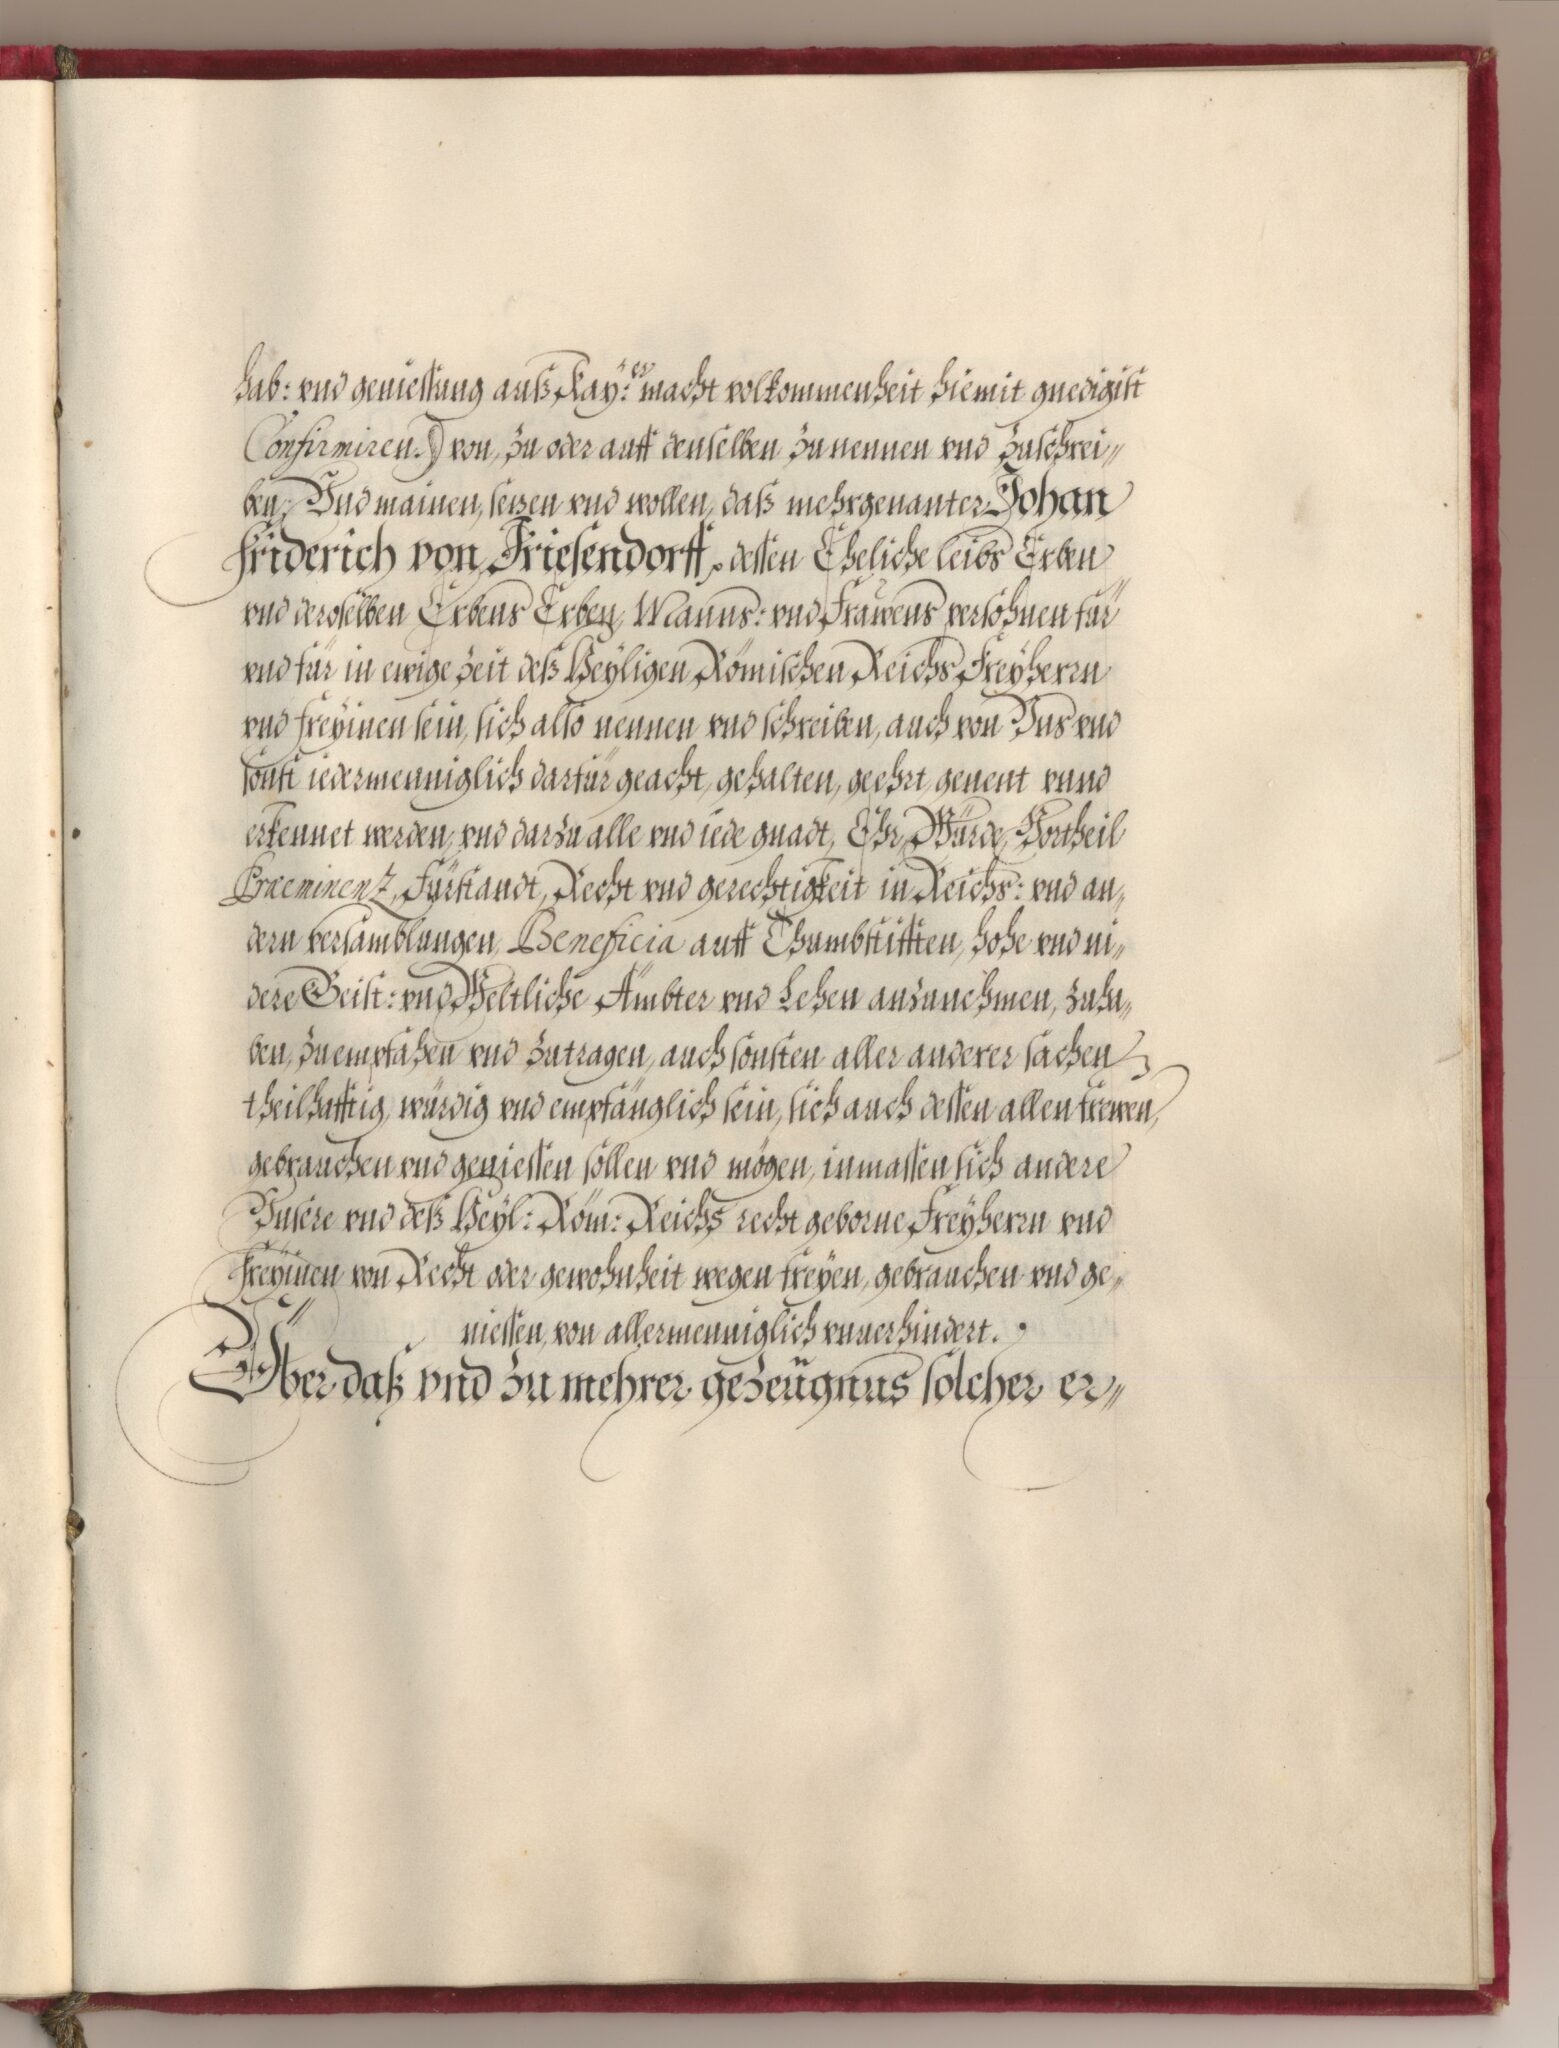 hab: vnd geniessung auß Kay:er macht volkommenheit hiemit gnedigist
Confirmiren.) von, zu oder auff denselben zunennen vnd zuschrei„
ben, Vnd mainen, setzen vnd wollen, daß mehrgenanter Johan
Friderich von Friesendorff, dessen Eheliche leibs Erben
vnd deroselben Erbens Erben, Manns: vnd Frawens persohnen für
vnd für in ewige Zeit deß Heyligen Römischen Reichs Freyherrn
vnd freyinen sein, sich also nennen vnd schreiben, auch von Vns vnd
sonst iedermenniglich darfür geacht, gehalten, geehrt, genent vnnd
erkennet werden, vnd darzu alle vnd iede gnadt, Ehr, Würde, Vortheil
Præminenz, Fürstandt, Recht vnd gerechtigkeit in Reichs: vnd an„
dern versamblungen, Beneficia auff Thumbstifften, hohe vnd ni„
dere Geist: vnd Weltliche Ämbter vnd Lehen anzunehmen, zuha„
ben, zu empfahen vnd zutragen, auch sonsten aller anderer sachen
theilhafftig, würdig vnd empfänglich sein, sich auch dessen allen frewen,
gebrauchen vnd geniessen sollen vnd mögen, inmassen sich andere
Vnsere vnd deß Heyl: Röm: Reichs recht geborne Freyherrn vnd
Freyinen von Recht oder gewohnheit wegen freyen, gebrauchen vnd ge„
niessen, von allermenniglich vnuerhindert.
Über daß vnd zu mehrer gezeügnus solcher er„